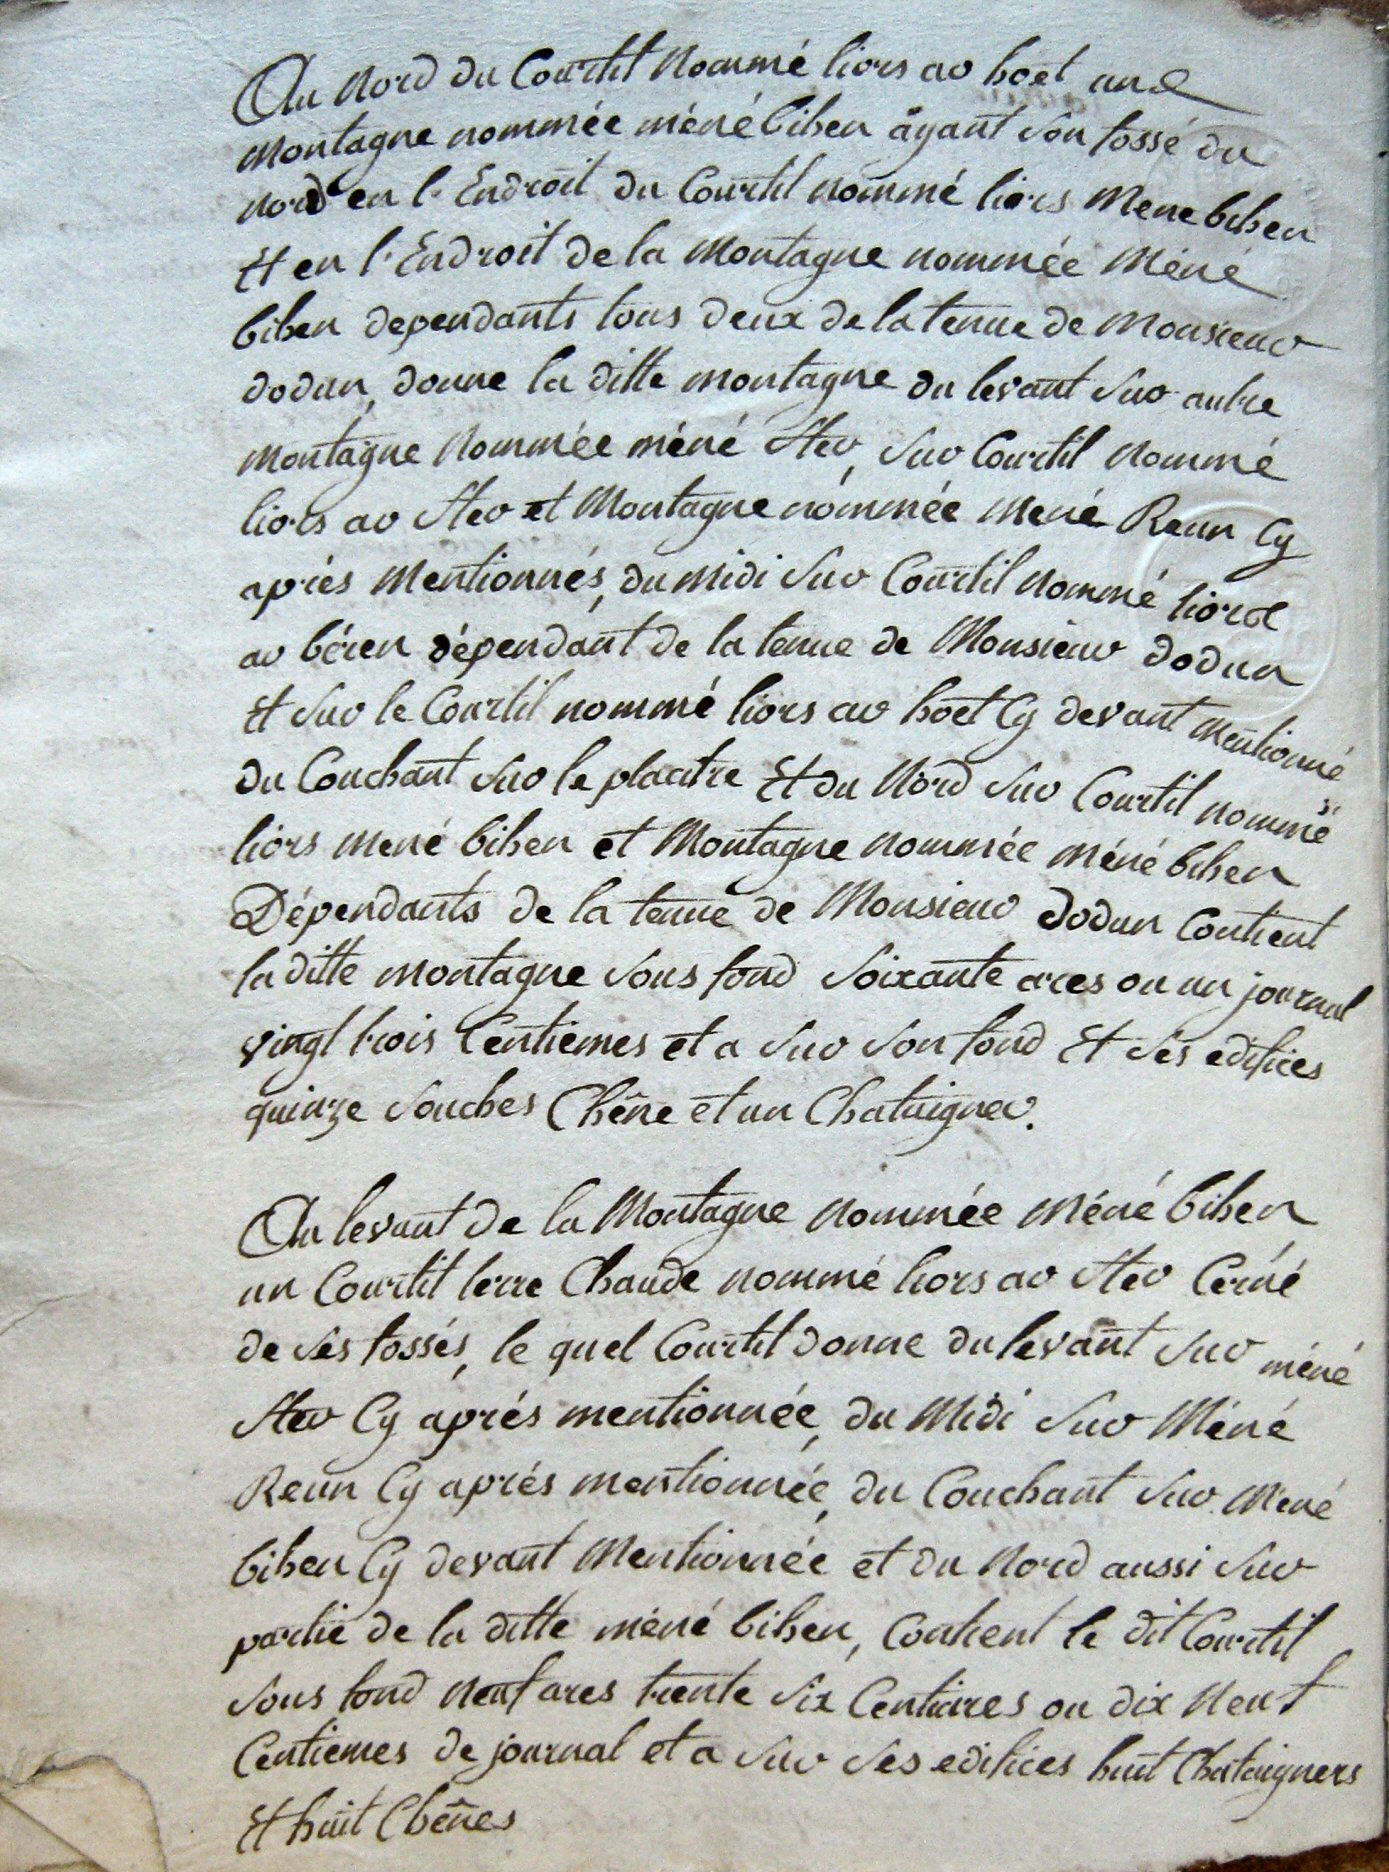 Au Nord du Courtil Nommé liors ar hoet une
Montagne nommée méné bihen ayant son fossé du
nord en l'Endroit du Courtil nommé liors Mene bihen
Et en l'Endroit de la Montagne nommée Méné
bihen dependants tous deux de la tenue de Monsieur
dodun, donne la ditte montagne du levant sur autre
Montagne Nommée méné Ster, sur Courtil Nommé
liors ar Ster et Montagne nommée mené Reun Cy
aprés Mentionnés, du midi sur Courtil Nommé liors
ar béren dépendant de la tenue de Monsieur dodun
Et sur le Courtil nommé liors ar hoet Cy devant mentionné
du Couchant sur le placitre Et du Nord sur Courtil nommé
liors mené bihen et Montagne nommée méné bihen
Dépendants de la tenue de Monsieur dodun Contient
la ditte montagne sous fond soixante ares ou un journal
vingt trois Centiemes et a sur son fond Et ses edifices
quinze souches Chêne et un Chataigner.
Au levant de la Montagne Nommée Méné bihen
un Courtil terre Chaude nommé liors ar Ster Cerné
de ses fossés, le quel Courtil donne du levant sur méné
Ster Cy aprés mentionnée, du Midi sur Méné
Reun Cy aprés mentionnée, du Couchant sur Mené
bihen Cy devant Mentionnée et du Nord aussi sur
partie de la ditte méné bihen, Contient le dit Courtil
sous fond neuf ares trente six Centiares ou dix Neuf
Centiemes de journal et a sur ses edifices huit Chataigners
Et huit Chênes